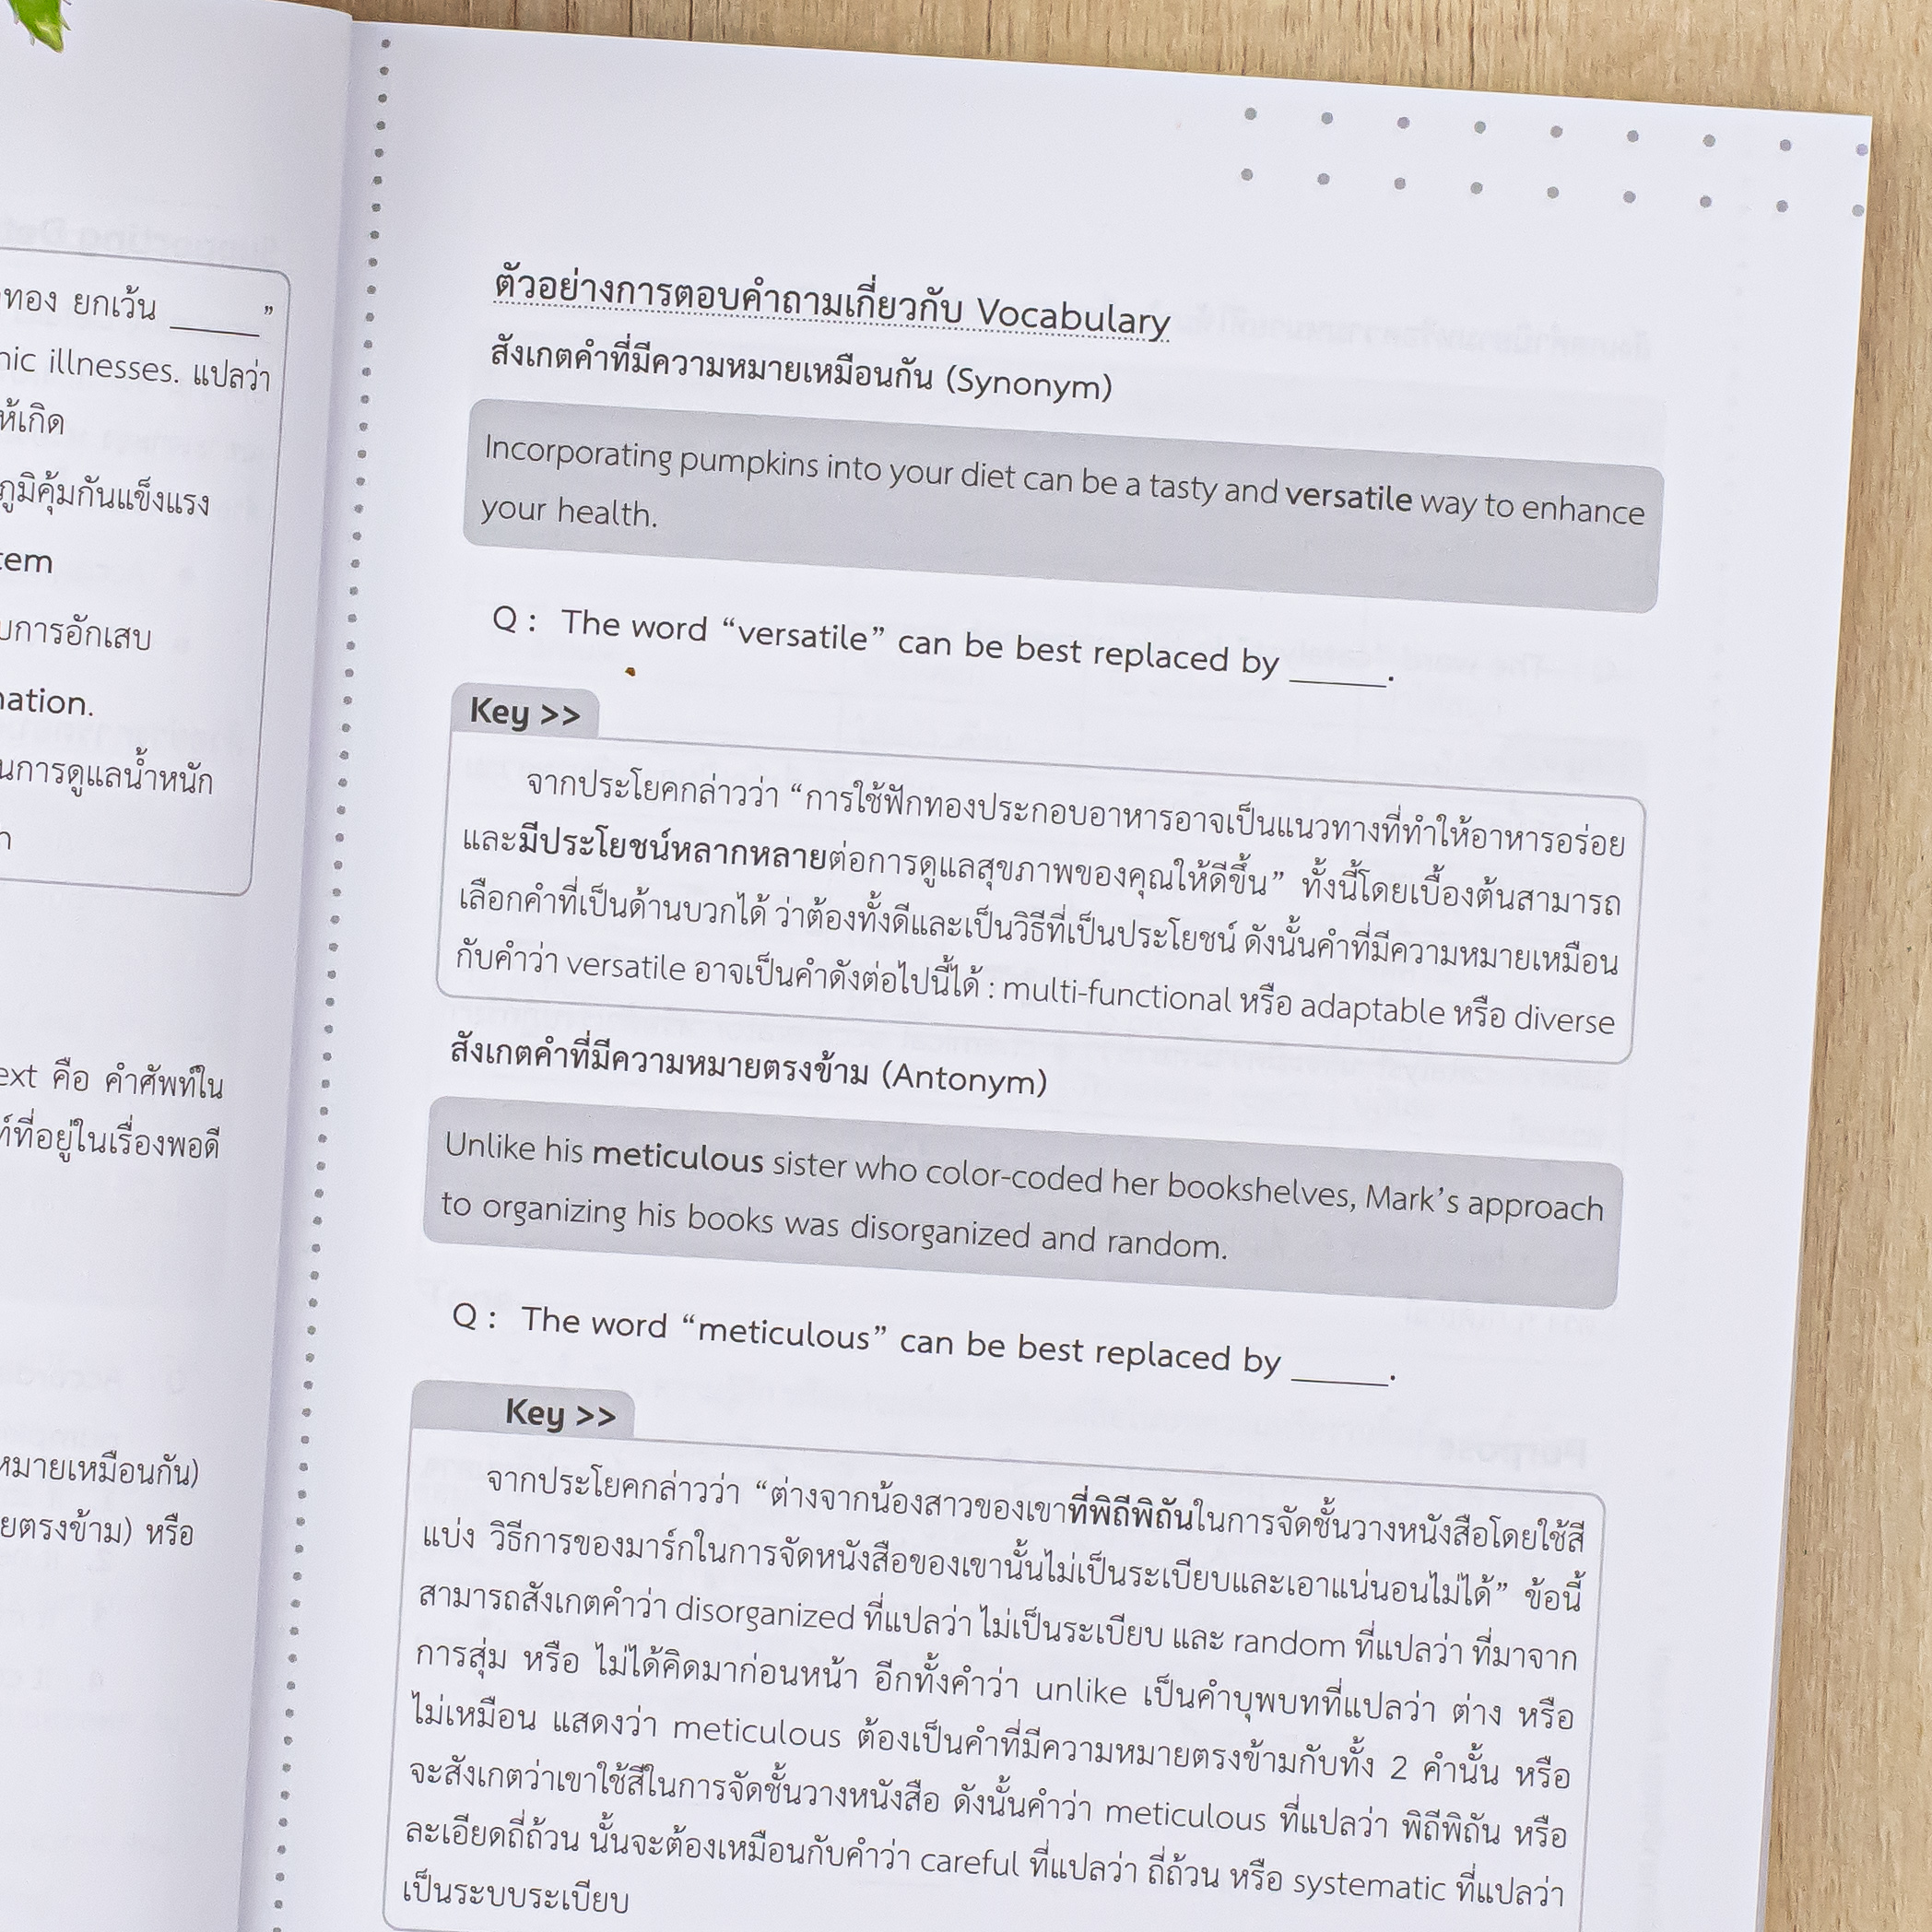 ทอง ยกเว้น _____”
illnesses. แปลว่า
ให้เกิด
ภูมิคุ้มกันแข็งแรง
การอักเสบ
การดูแลน้ำหนัก
คือ คำศัพท์ใน
ที่อยู่ในเรื่องพอดี
หมายเหมือนกัน)
ตรงข้าม) หรือ
ตัวอย่างการตอบคำถามเกี่ยวกับ Vocabulary
สังเกตคำที่มีความหมายเหมือนกัน (Synonym)
Incorporating pumpkins into your diet can be a tasty and versatile way to enhance
your health.
Q : The word “versatile” can be best replaced by _____.
Key >>
จากประโยคกล่าวว่า “การใช้ฟักทองประกอบอาหารอาจเป็นแนวทางที่ทำให้อาหารอร่อย
และมีประโยชน์หลากหลายต่อการดูแลสุขภาพของคุณให้ดีขึ้น” ทั้งนี้โดยเบื้องต้นสามารถ
เลือกคำที่เป็นด้านบวกได้ ว่าต้องทั้งดีและเป็นวิธีที่เป็นประโยชน์ ดังนั้นคำที่มีความหมายเหมือน
กับคำว่า versatile อาจเป็นคำดังต่อไปนี้ได้ : multi-functional หรือ adaptable หรือ diverse
สังเกตคำที่มีความหมายตรงข้าม (Antonym)
Unlike his meticulous sister who color-coded her bookshelves, Mark’s approach
to organizing his books was disorganized and random.
Q : The word “meticulous” can be best replaced by _____.
Key >>
จากประโยคกล่าวว่า “ต่างจากน้องสาวของเขาที่พิถีพิถันในการจัดชั้นวางหนังสือโดยใช้สี
แบ่ง วิธีการของมาร์กในการจัดหนังสือของเขานั้นไม่เป็นระเบียบและเอาแน่นอนไม่ได้” ข้อนี้
สามารถสังเกตคำว่า disorganized ที่แปลว่า ไม่เป็นระเบียบ และ random ที่แปลว่า ที่มาจาก
การสุ่ม หรือ ไม่ได้คิดมาก่อนหน้า อีกทั้งคำว่า unlike เป็นคำบุพบทที่แปลว่า ต่าง หรือ
ไม่เหมือน แสดงว่า meticulous ต้องเป็นคำที่มีความหมายตรงข้ามกับทั้ง 2 คำนั้น หรือ
จะสังเกตว่าเขาใช้สีในการจัดชั้นวางหนังสือ ดังนั้นคำว่า meticulous ที่แปลว่า พิถีพิถัน หรือ
ละเอียดถี่ถ้วน นั้นจะต้องเหมือนกับคำว่า careful ที่แปลว่า ถี่ถ้วน หรือ systematic ที่แปลว่า
เป็นระบบระเบียบ